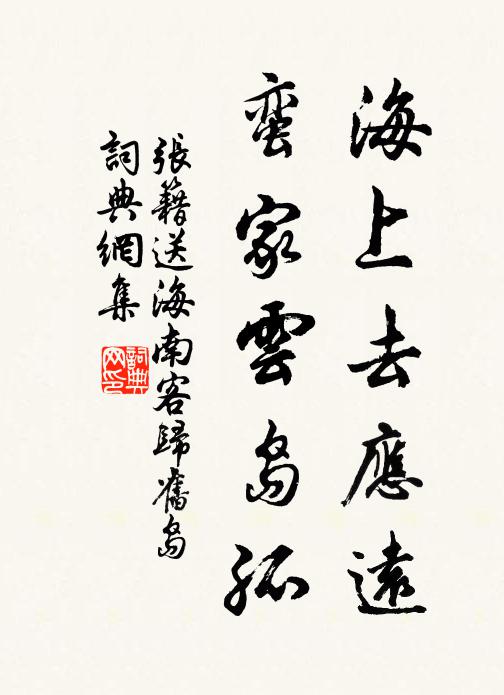 海上去應遠
蛮家雲島孤
張籍送海南客歸舊島
詞典網集
詞典网印